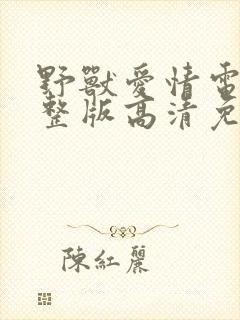 野獸愛情電
整版高清免
陳紅麗